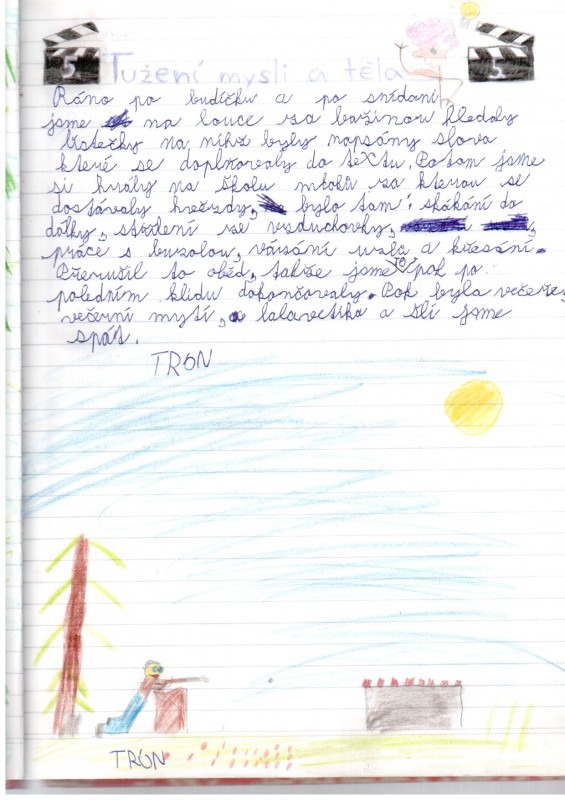 5 5
Tužení mysli a těla
Ráno po budíčku a po snídani
jsme na louce za bažinou hledaly
lístečky na nihž byly napsány slova
které se doplňovaly do textu. Potom jsme
si hrály na školu mlobů za kterou se
dostávaly hvězdy, bylo tam: skákání do
dálky, střelení ze vzduchovky,
práce s buzolou, vázání uzlů a křesání.
Přerušil to oběd, takže jsme to pak po
poledním klidu dokončovaly. Pak byla večeře,
večerní mytí, a šli jsme
spát.
TRON
TRON